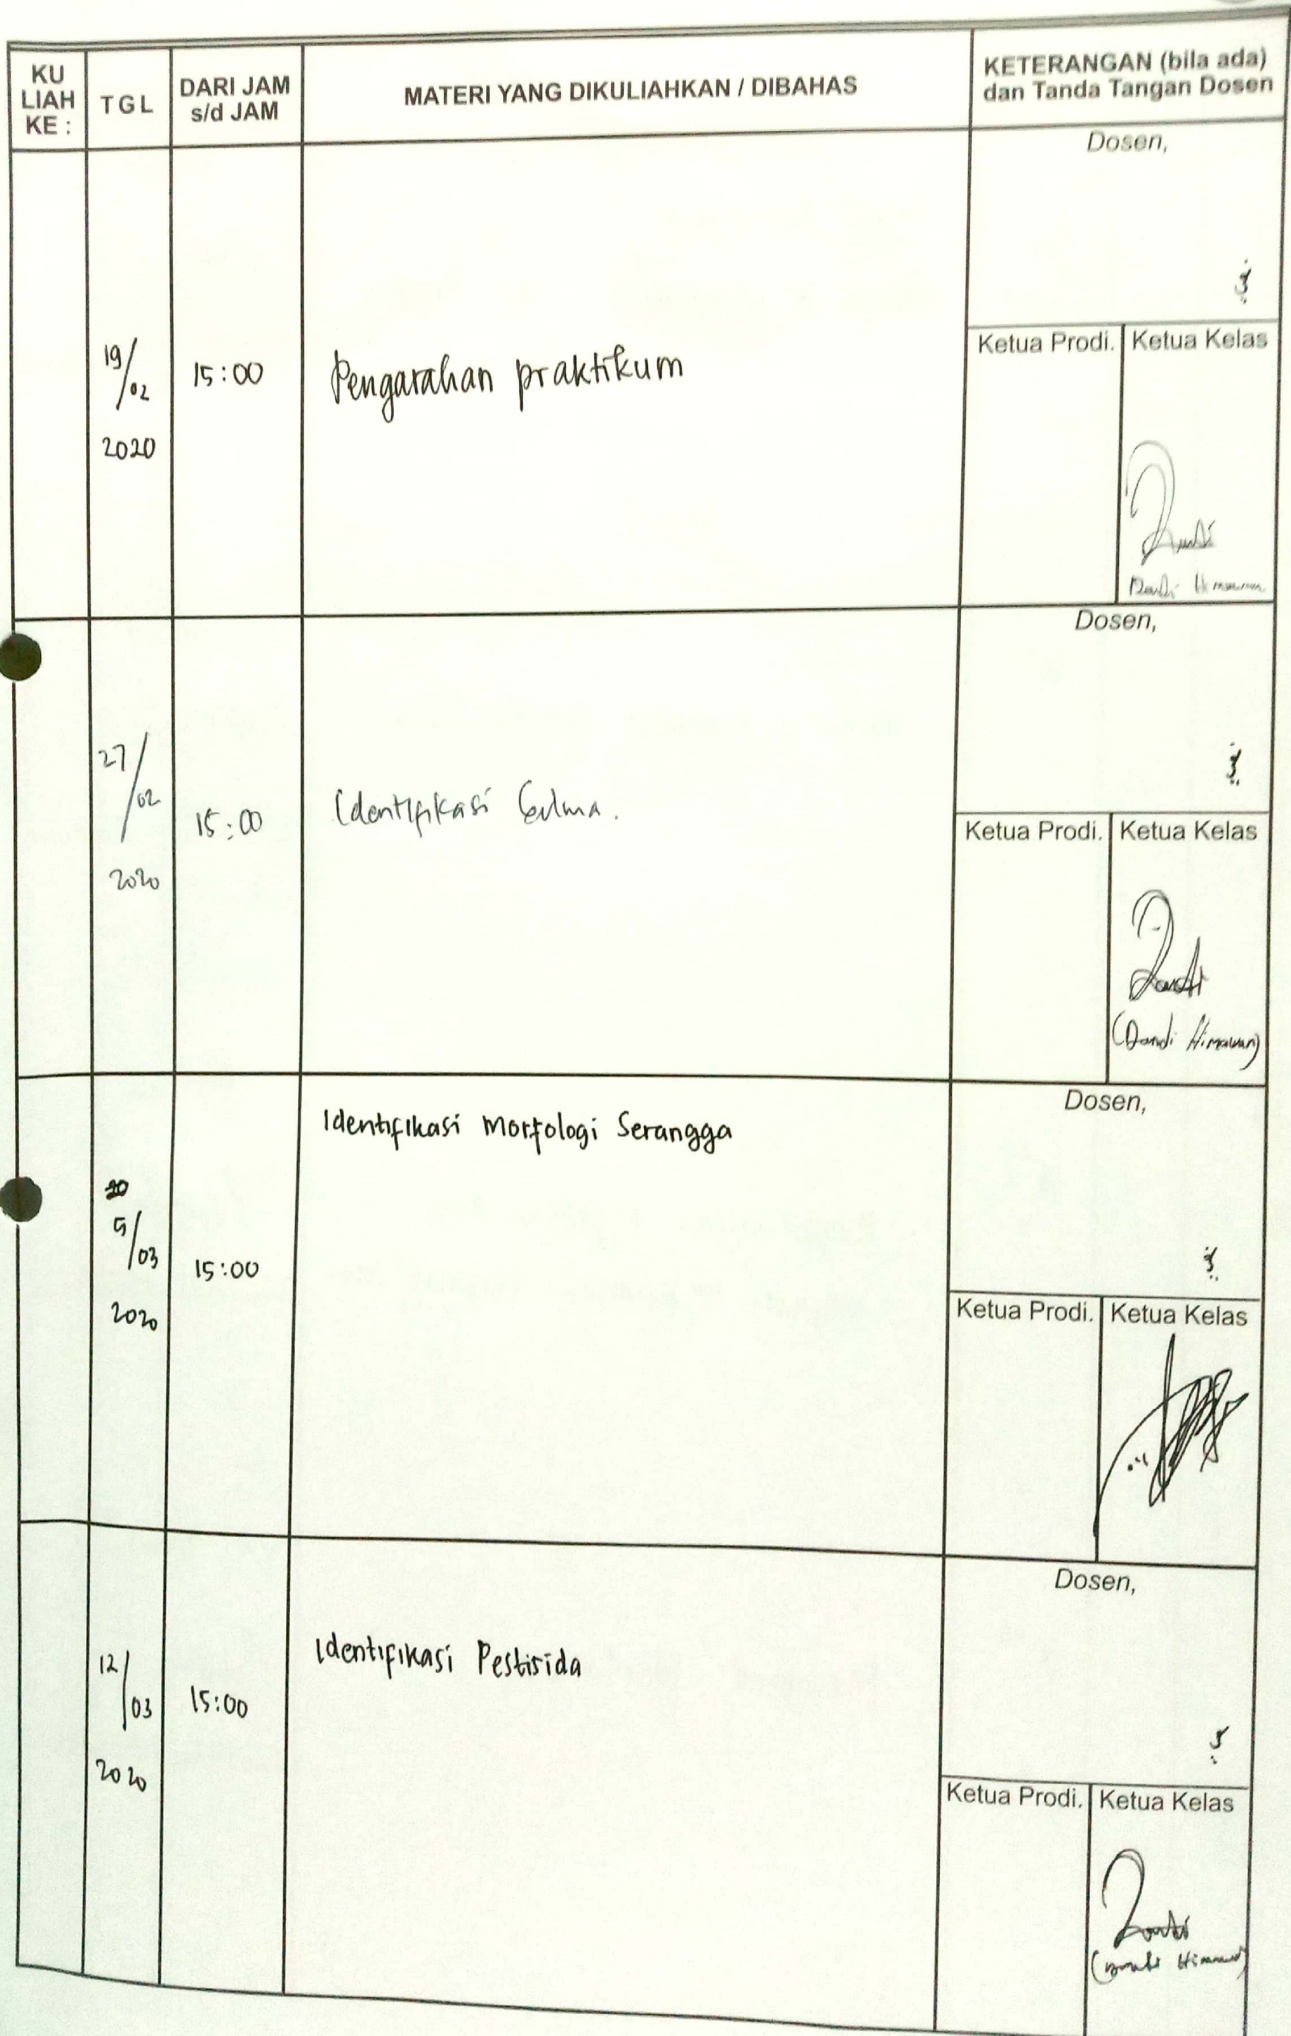 KU
LIAH
KE :
TGL
DARI JAM
s/d JAM
MATERI YANG DIKULIAHKAN / DIBAHAS
KETERANGAN (bila ada)
dan Tanda Tangan Dosen
Dosen,
19/02
2020
15:00
Pengarahan praktikum
Ketua Prodi.
Ketua Kelas
Dandi Himawan
Dosen,
27/02
2020
15:00
Identifikasi Gulma.
Ketua Prodi.
Ketua Kelas
Dandi
(Dandi Himawan)
Dosen,
5/03
2020
15:00
Identifikasi Morfologi Serangga
Ketua Prodi.
Ketua Kelas
Dosen,
12/03
2020
15:00
Identifikasi Pestisida
Ketua Prodi.
Ketua Kelas